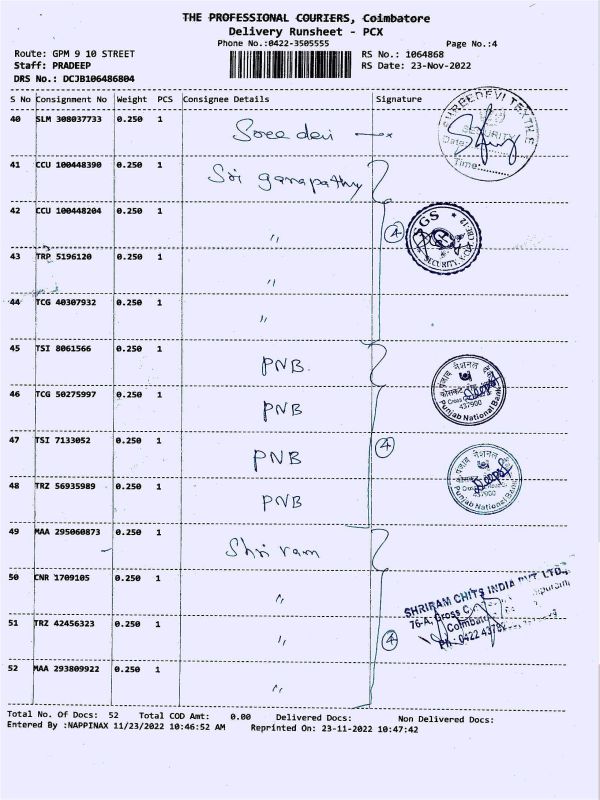 THE PROFESSIONAL COURIERS, Coimbatore
Delivery Runsheet - PCX
Phone No.:0422-3505555
Page No.:4
Route: GPM 9 10 STREET
RS No.: 1064868
Staff: PRADEEP
RS Date: 23-Nov-2022
DRS No.: DCJB106486804
S No Consignment No Weight PCS Consignee Details Signature
40 SLM 308037733 0.250 1 Sree devi
SHREEDEVI TEXTILE
SECURITY
Date:
Time:
41 CCU 100448390 0.250 1 Sri ganapathy
42 CCU 100448204 0.250 1 〃
4
SGS
SECURITY
43 TRP 5196120 0.250 1 〃
44 TCG 40307932 0.250 1 〃
45 TSI 8061566 0.250 1 PNB.
पंजाब नैशनल बैंक
437900
Punjab National Bank
46 TCG 50275997 0.250 1 PNB
47 TSI 7133052 0.250 1 PNB
4
पंजाब नैशनल बैंक
437900
Punjab National Bank
48 TRZ 56935989 0.250 1 PNB
49 MAA 295060873 0.250 1 Shri ram
50 CNR 1709105 0.250 1 〃
SHRIRAM CHITS INDIA PVT. LTD.,
76-A, Cross C
Coimbato
Ph : 0422 4379
51 TRZ 42456323 0.250 1 〃
4
52 MAA 293809922 0.250 1 〃
Total No. Of Docs: 52 Total COD Amt: 0.00 Delivered Docs: Non Delivered Docs:
Entered By :NAPPINAX 11/23/2022 10:46:52 AM Reprinted On: 23-11-2022 10:47:42